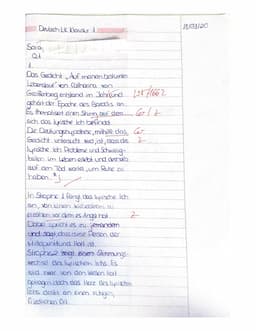 Deutsch LK Klausur 1
18/09/20
Sara,
Q1
1.
Das Gedicht „Auf meinen bestürmten
Lebenslauf“ von Catharina von
Greiffenberg entstand im Jahr und 1662
gehört der Epoche des Barocks an.
Es thematisiert einen Sturm, auf dem G/Z
sich das lyrische Ich befindet.
Die Deutungshypothese, mithilfe das G.
Gedicht untersucht wird ist, dass die Z
lyrische Ich Probleme und Schwierig-
keiten im Leben erlebt und deshalb
auf den Tod wartet, um Ruhe zu
haben.
In Strophe 1 fängt das lyrische Ich
an, von einem
erzählen vor dem es Angst hat. Z
Dabei spricht es zu jemandem
und sagt, dass diese Person der
Mittelpunkt und Halt ist.
Strophe 2 zeigt einen Stimmungs-
wechsel des lyrischen Ichs. Es
wird zwar von den Wellen hart
getragen doch das Herz des lyrischen
Ichs denkt an einen ruhigen,
friedlichen Ort.